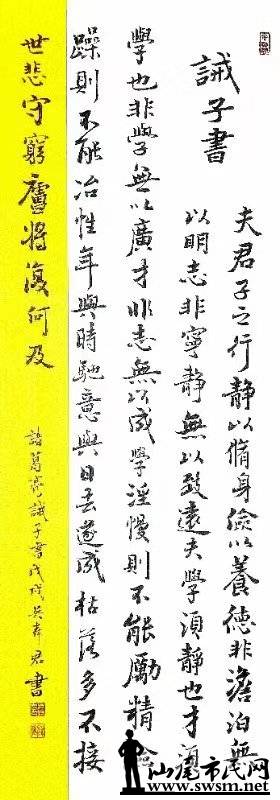 誡子書
夫君子之行靜以脩身儉以養德非澹泊無
以明志非寧靜無以致遠夫學須靜也才須
學也非學無以廣才非志無以成學淫慢則不能勵精險
躁則不能冶性年與時馳意與日去遂成枯落多不接
世悲守窮廬將復何及
諸葛亮誡子書戊戌吳君書
汕尾市民网
www.swsm.net